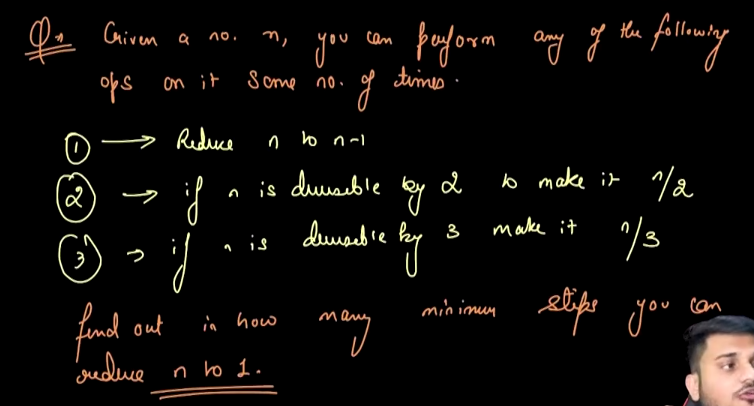 Q. Given a no. n, you can perform any of the following
ops on it some no. of times.
① → Reduce n to n-1
② → if n is divisible by 2 to make it n/2
③ → if n is divisible by 3 make it n/3
find out in how many minimum steps you can
reduce n to 1.